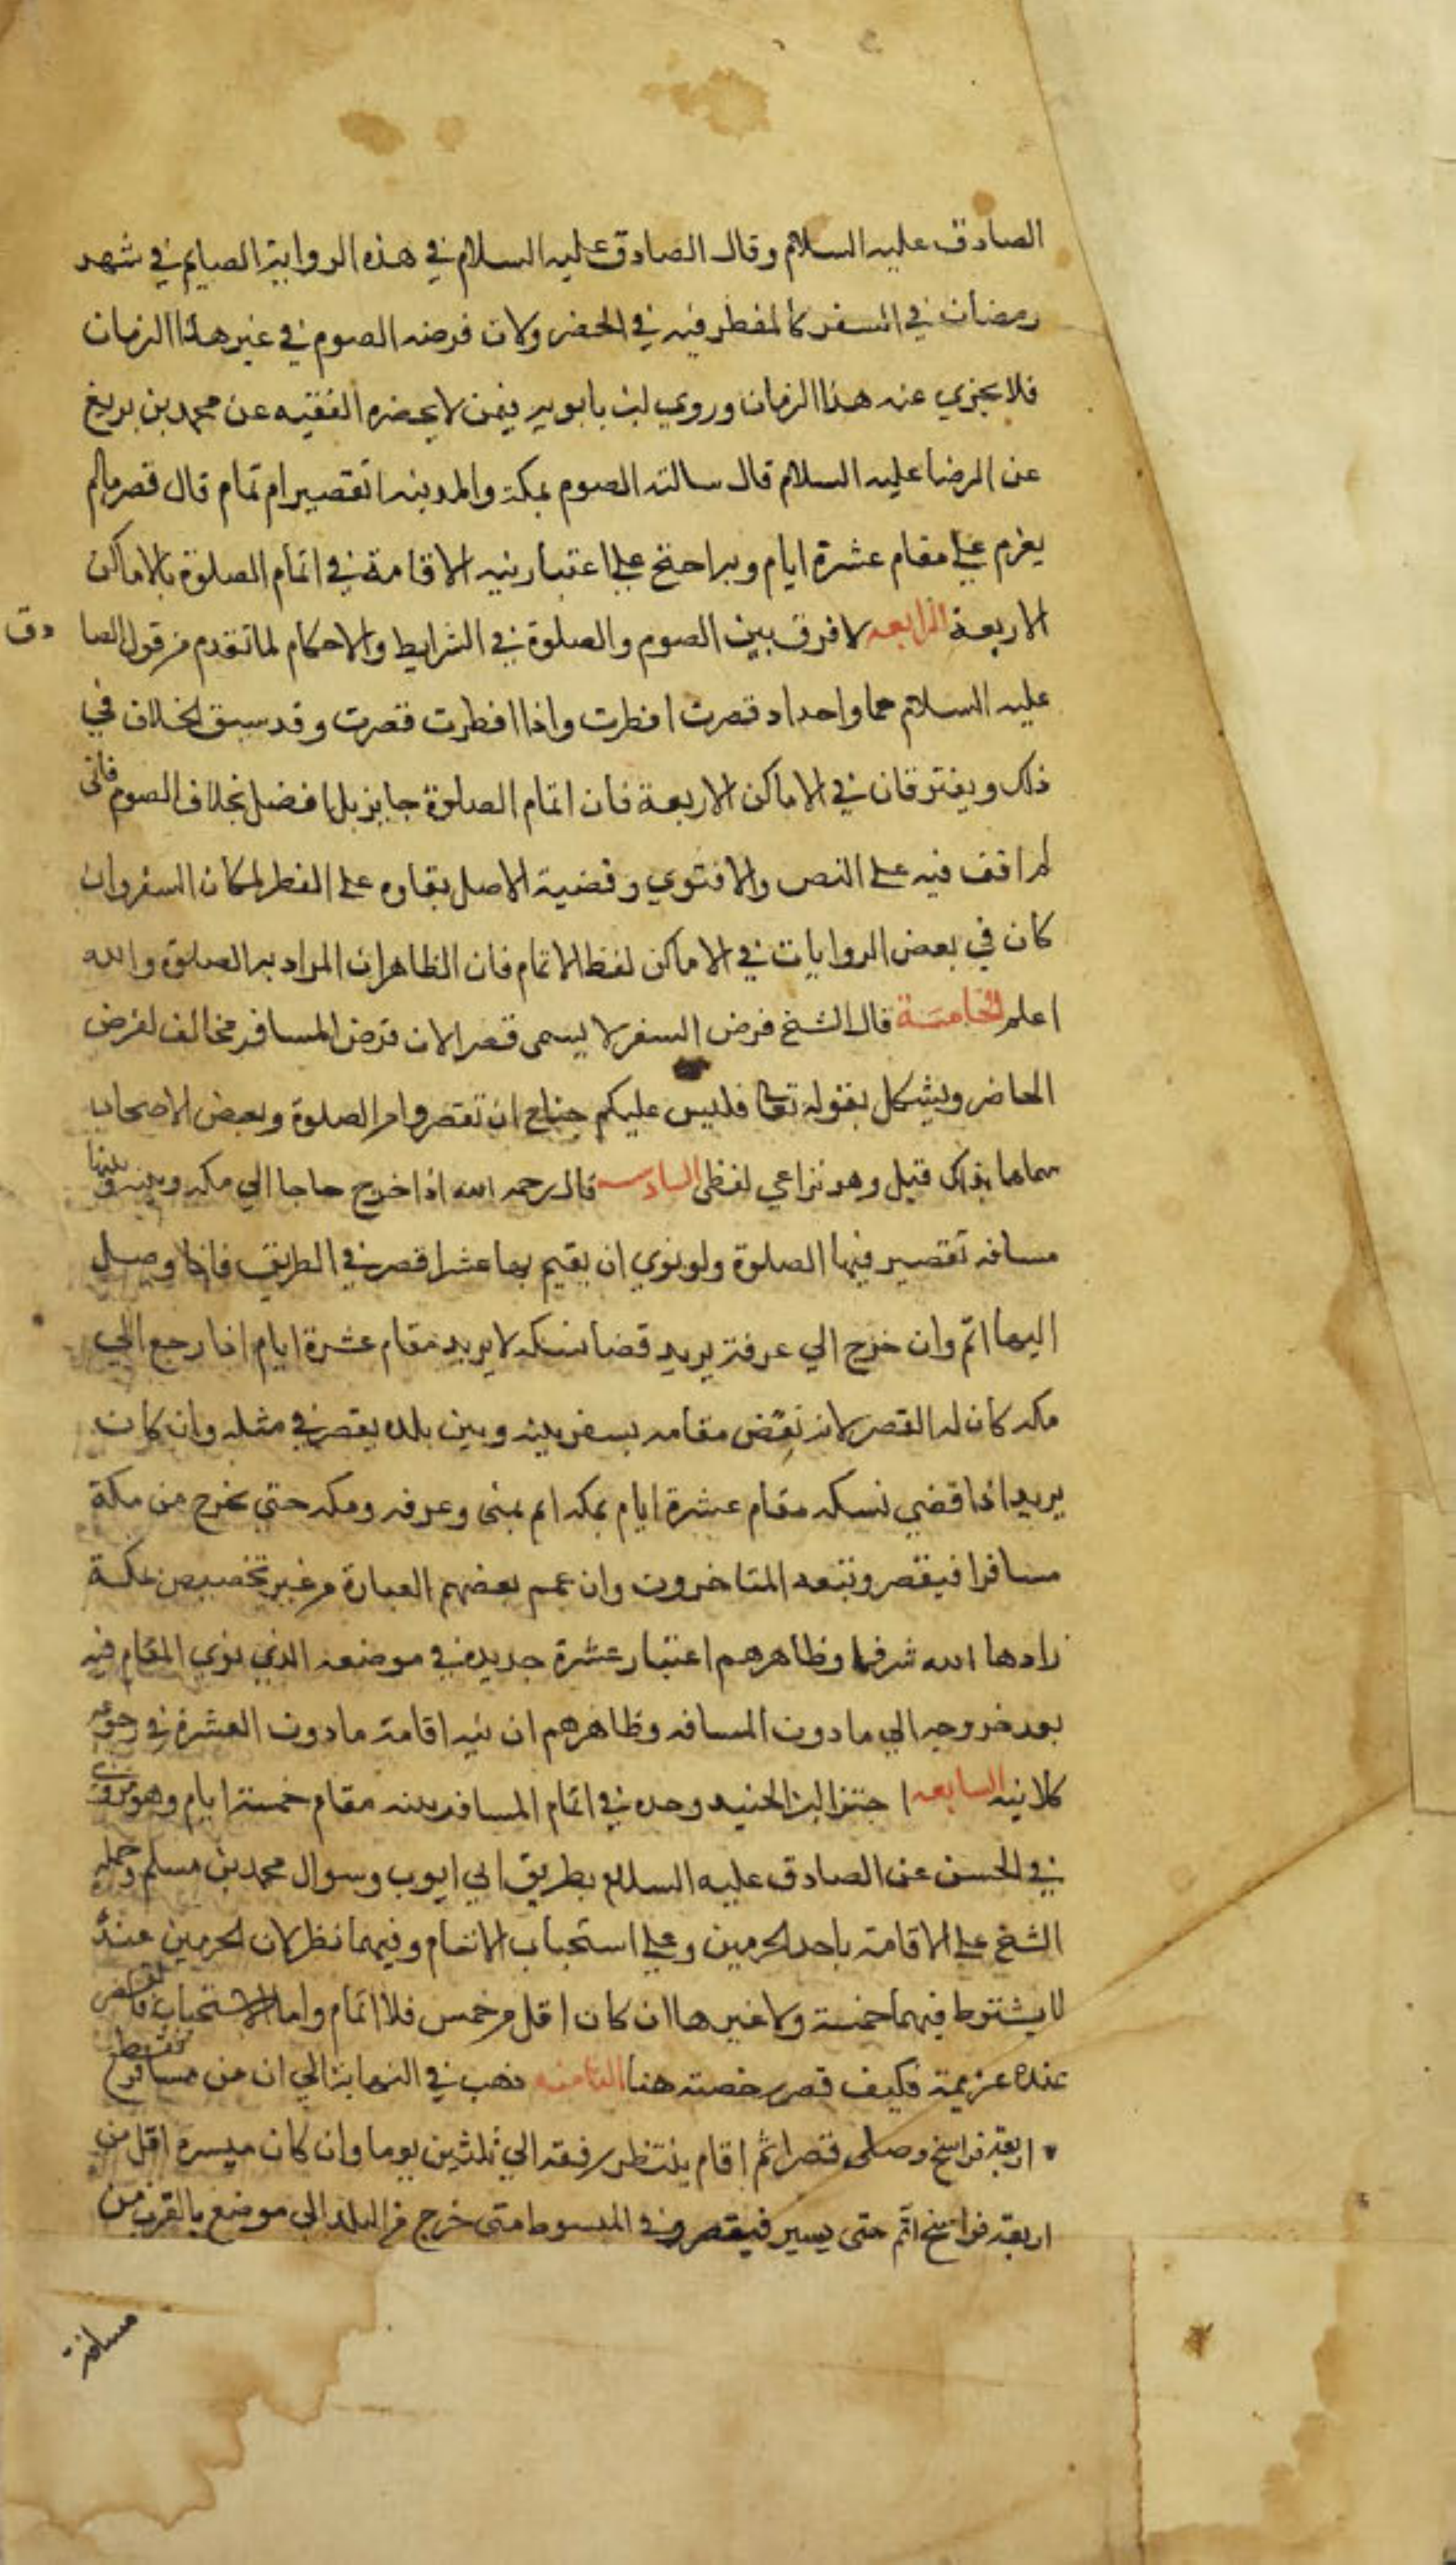 الصادق عليه السلام وقال الصادق عليه السلام في هذه الرواية الصايم في شهر
رمضان في السفر كالمفطر فيه في الحضر ولان فرضه الصوم في غير هذا الزمان
فلا يجزي عنه هذا الزمان وروي ابن بابويه فيمن لا يحضره الفقيه عن محمد بن بزيغ
عن الرضا عليه السلام قال سالته الصوم بمكة والمدينه اتقصير ام تمام قال قصر مالم
يعزم على مقام عشرة ايام وبه احتج على اعتبار نيه الاقامة في اتمام الصلوة بالاماكن
الاربعة الرابعه لا فرق بين الصوم والصلوة في الشرايط والاحكام لما تقدم من قول الصادق
عليه السلام هما واحد اد قصرت افطرت واذا افطرت قصرت وقد سبق الخلاف في
ذلك ويفترقان في الاماكن الاربعة فان اتمام الصلوة جايز بل افضل بخلاف الصوم فاني
لم اقف فيه على النص والافتوي وقضية الاصل بقاوه على الفطر لمكان السفر وان
كان في بعض الروايات في الاماكن لفظ الاتمام فان الظاهر ان المراد به الصلوة والله
اعلم الخامسة قال الشيخ فرض السفر لا يسمى قصرا لان فرض المسافر مخالف لفرض
الحاضر ويشكل بقوله تعالى فليس عليكم جناح ان تقصروا من الصلوة وبعض الاصحاب
سماها بذلك قيل وهو نزاعي لفظى السادسه قال رحمه الله اذا خرج حاجا الي مكه وبينه وبينها
مسافه تقصير فيها الصلوة ولو نوي ان يقيم بها عشرا قصر في الطريق فاذا وصل
اليها اتم وان خرج الي عرفة يريد قضا نسكه لا يريد مقام عشرة ايام اذا رجع الي
مكه كان له القصر لانه نقض مقامه بسفر بينه وبين بلده يقصر في مثله وان كان
يريد اذا قضي نسكه مقام عشرة ايام بمكه اتم بمنى وعرفه ومكه حتي يخرج من مكة
مسافرا فيقصر وتبعه المتاخرون وان عمم بعضهم العبارة من غير تخصيص بمكة
زادها الله شرفا وظاهرهم اعتبار عشرة جديدة في موضعه الذي نوي المقام فيه
بعد خروجه الي مادون المسافه وظاهرهم ان نيه اقامة مادون العشرة في رجوعه
كلانيه السابعه اجتزا ابن الجنيد وحده في اتمام المسافر بنيه مقام خمسة ايام وهو مروي
في الحسن عن الصادق عليه السلام بطريق ابي ايوب وسوال محمد بن مسلم وحمله
الشيخ على الاقامة باحد الحرمين وعلى استحباب الاتمام وفيهما نظر لان الحرمين عنده
لا يشترط فيهما خمسة ولا غيرها ان كان اقل من خمس فلا اتمام واما الاستحباب فالقصر
عنده عزيمة فكيف قصر رخصة هنا الثامنه ذهب في النهاية الي ان من
اربعة فراسخ وصلى قصرا ثم اقام ينتظر رفقه الي ثلثين يوما وان كان مسيره اقل من
اربعة فراسخ اتم حتى يسير فيقصر وفي المبسوط متى خرج من البلد الى موضع بالقرب من
مسافة